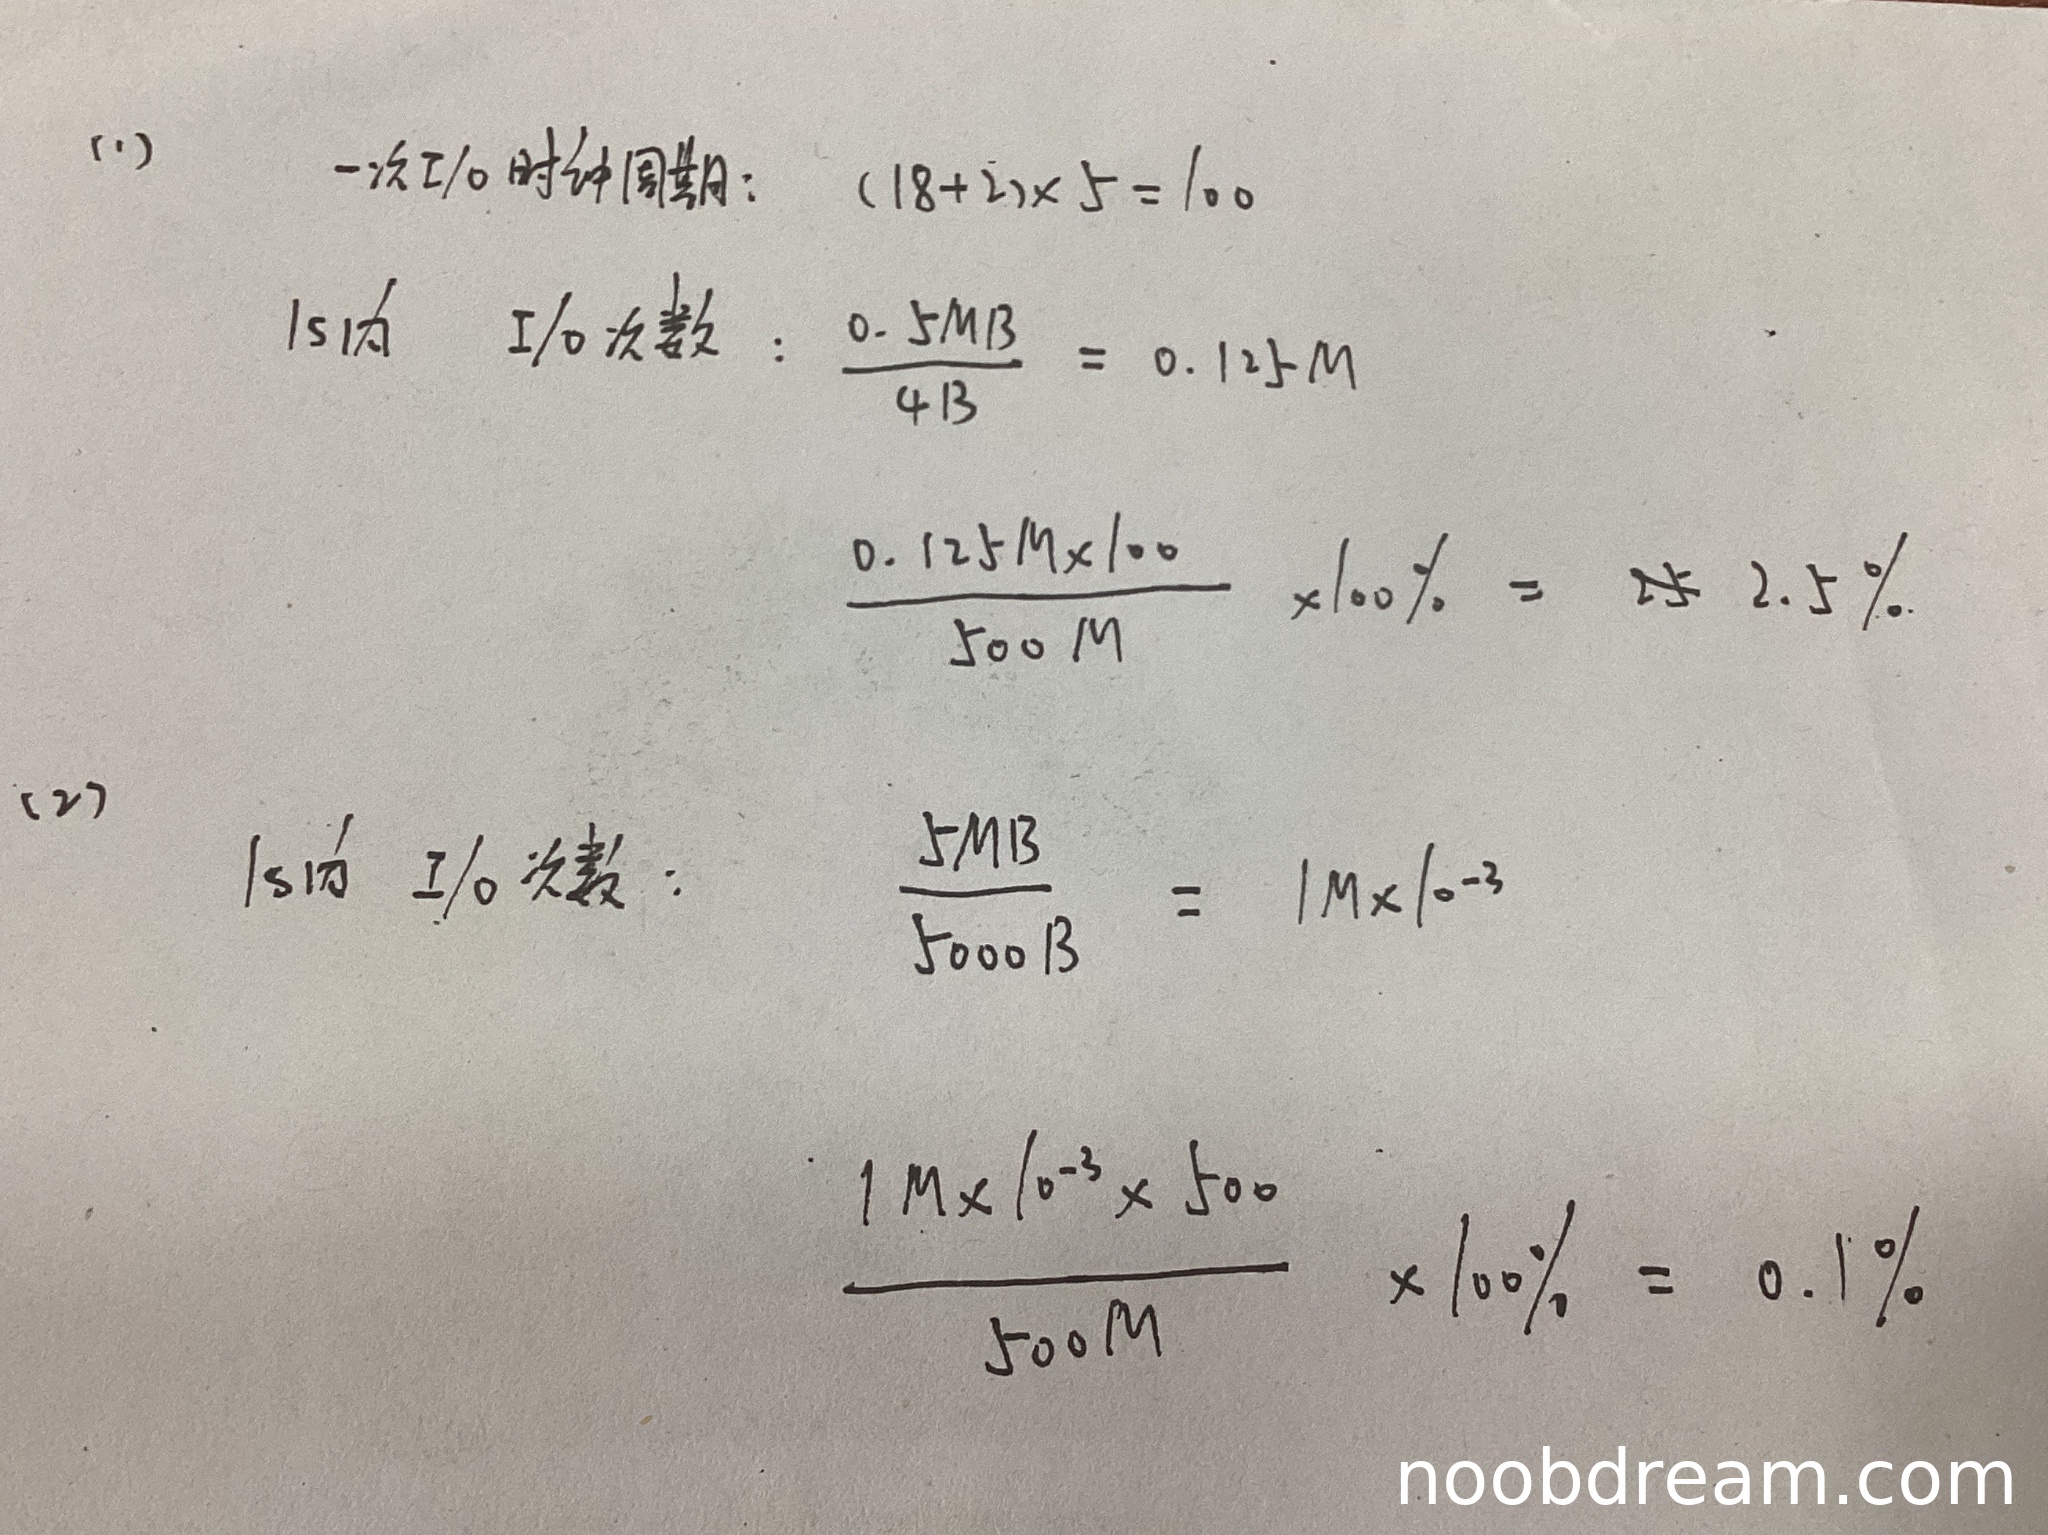 (1) 一次I/O时钟周期: (18+2)×5=100
1s内 I/O次数: 0.5MB/4B = 0.125M
0.125M×100/500M ×100% = 2.5%
(2) 1s内 I/O次数: 5MB/5000B = 1M×10⁻³
1M×10⁻³×500/500M ×100% = 0.1%
noobdream.com